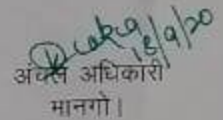 18/9/20
अंचल अधिकारी
मानगो।